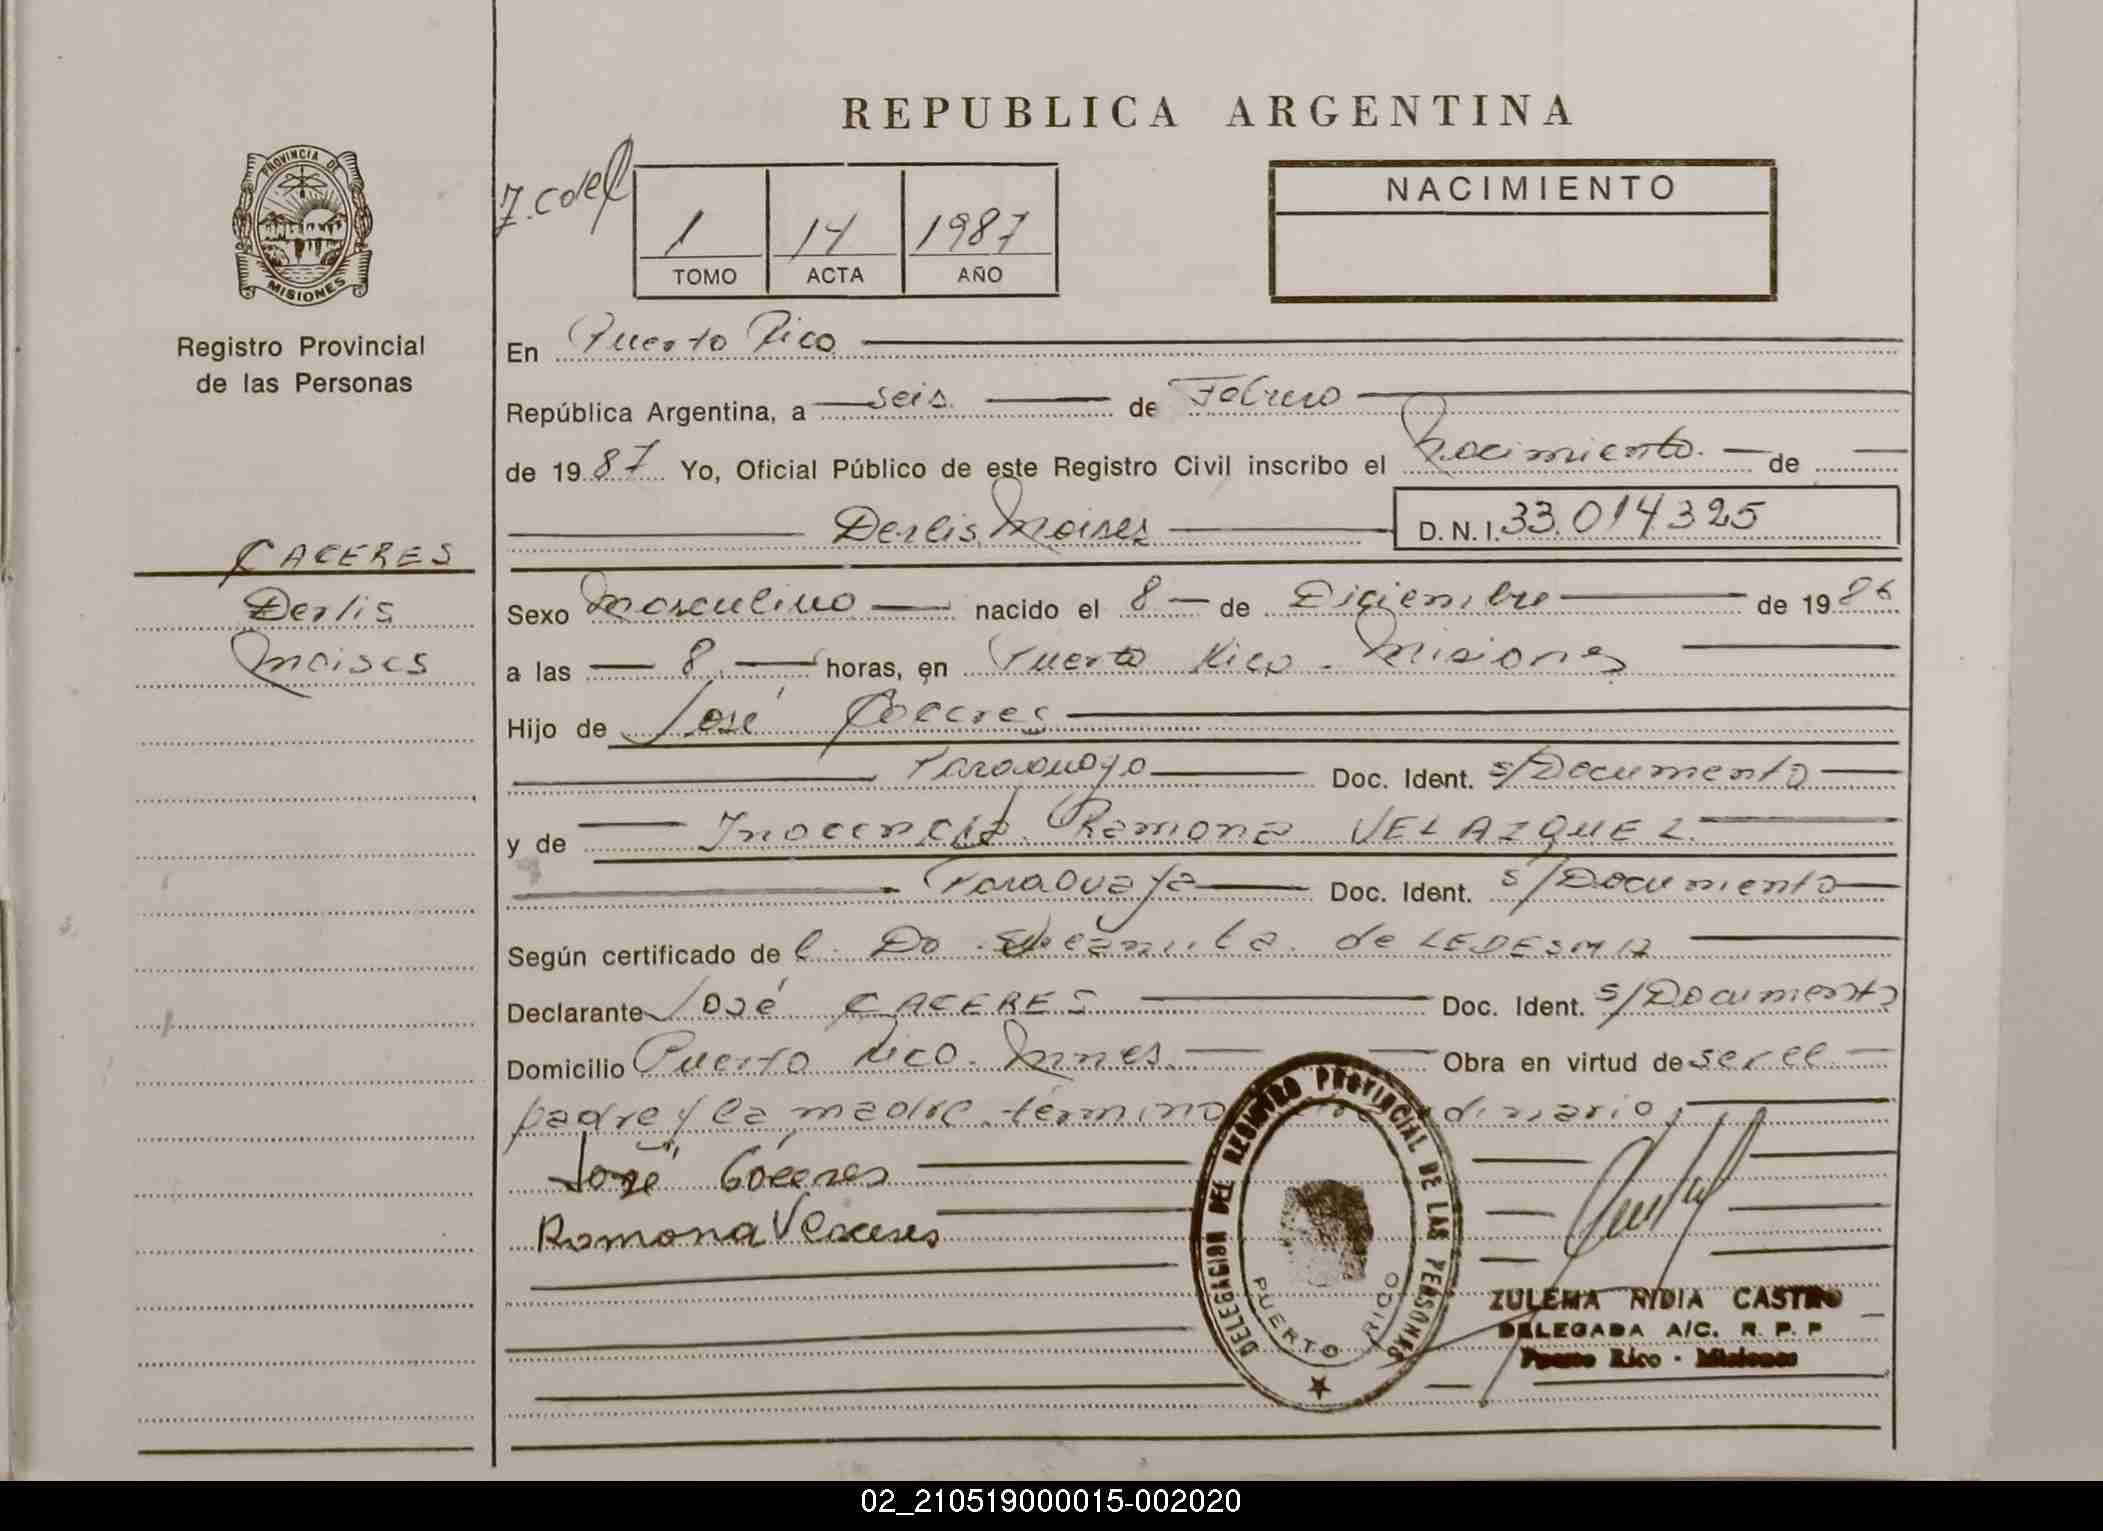 REPUBLICA ARGENTINA
PROVINCIA DE
MISIONES
Registro Provincial
de las Personas
1 14 1987
TOMO ACTA AÑO
NACIMIENTO
En Puerto Rico
República Argentina, a seis de Febrero
de 1987 Yo, Oficial Público de este Registro Civil inscribo el Nacimiento de
Derlis Moises D.N.I. 33.014.325
CACERES
Derlis
Moises
Sexo Masculino nacido el 8 de Diciembre de 1986
a las 8 horas, en Puerto Rico - Misiones
Hijo de José Caceres
Paraguayo Doc. Ident. s/Documento
y de Inocencia Ramona VELAZQUEZ
Paraguaya Doc. Ident. s/Documento
Según certificado de l. Da. de LEDESMA
Declarante José CACERES Doc. Ident. s/Documento
Domicilio Puerto Rico - Mnes. Obra en virtud de ser el
padre y la madre. termino
José Caceres
Ramona
DELEGACION DEL REGISTRO PROVINCIAL DE LAS PERSONAS
PUERTO RICO
ZULEMA NYDIA CASTRO
DELEGADA A/C. R. P. P
Puerto Rico - Misiones
02_210519000015-002020